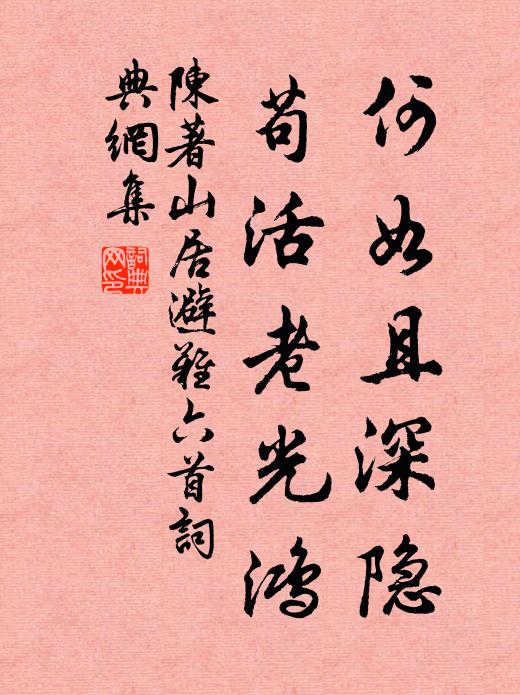 何如且深隐
苟活老光鸿
陳著山居避難六首詞
典網集
詞典網印